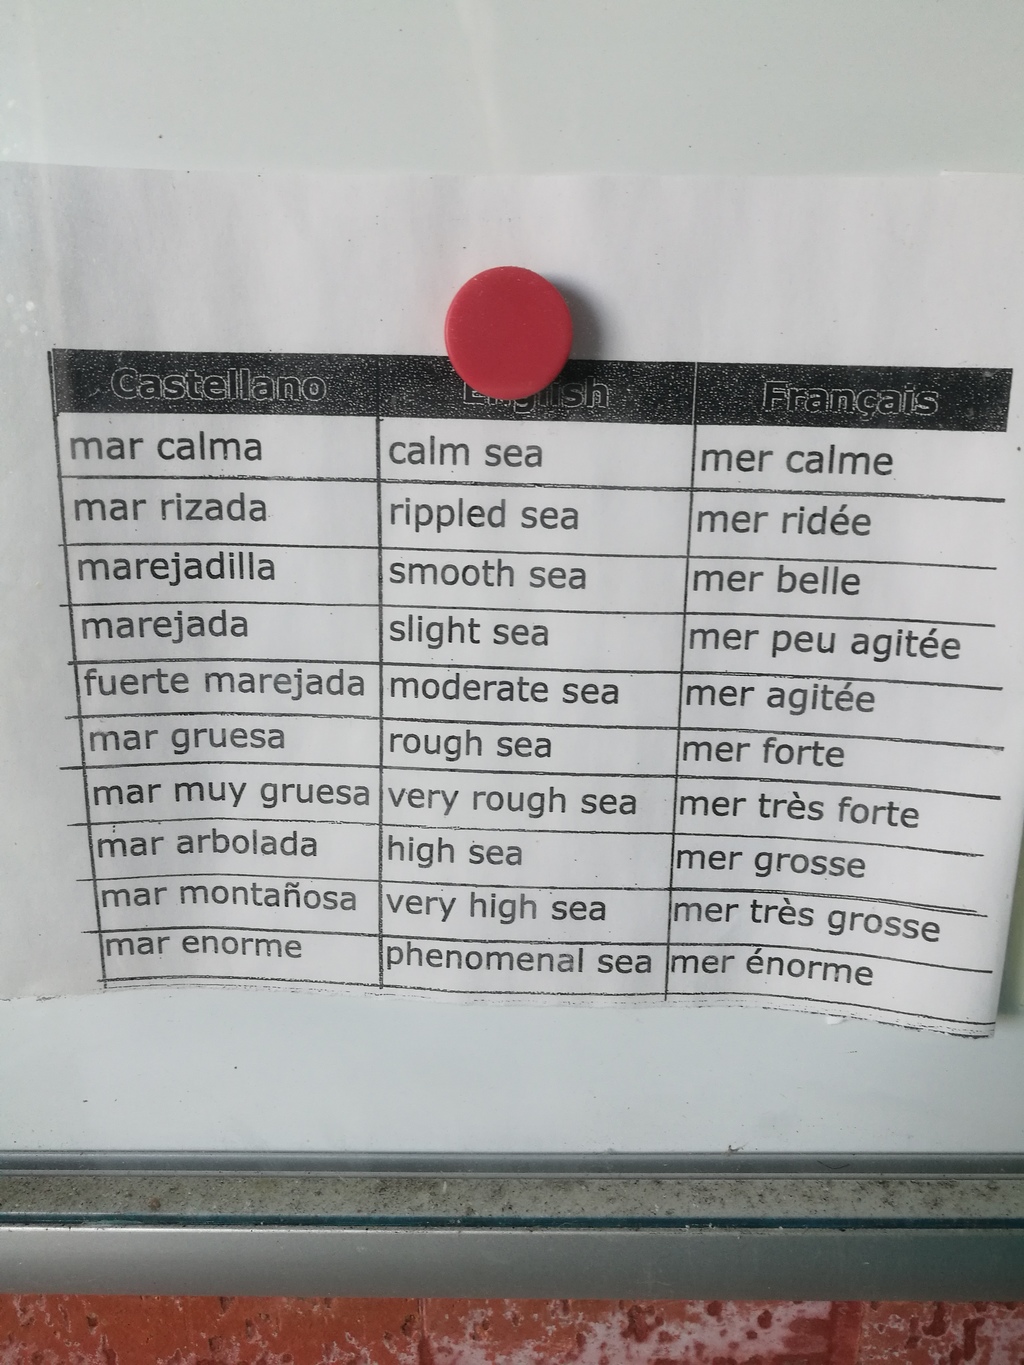 Castellano English Français
mar calma calm sea mer calme
mar rizada rippled sea mer ridée
marejadilla smooth sea mer belle
marejada slight sea mer peu agitée
fuerte marejada moderate sea mer agitée
mar gruesa rough sea mer forte
mar muy gruesa very rough sea mer très forte
mar arbolada high sea mer grosse
mar montañosa very high sea mer très grosse
mar enorme phenomenal sea mer énorme